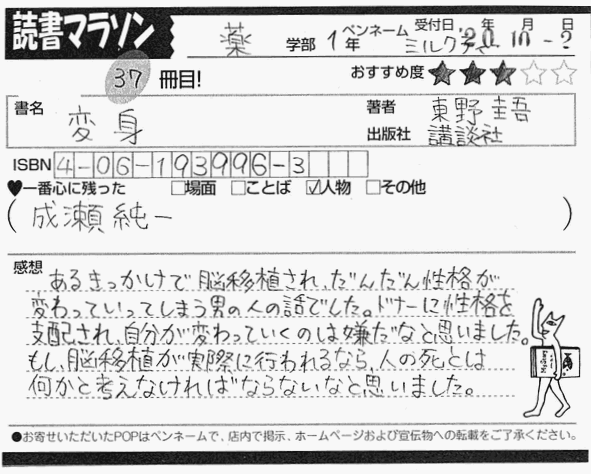 読書マラソン
薬 学部 1年 ペンネーム ミルクティー 受付日 '20年 10月 -2日
37 冊目!
おすすめ度 ★★★☆☆
書名 変身
著者 東野圭吾
出版社 講談社
ISBN 4-06-193996-3
♥一番心に残った □場面 □ことば ☑人物 □その他
(成瀬純一)
感想
あるきっかけで脳移植され、だんだん性格が
変わっていってしまう男の人の話でした。ドナーに性格を
支配され、自分が変わっていくのは嫌だなと思いました。
もし、脳移植が実際に行われるなら、人の死とは
何かと考えなければならないなと思いました。
●お寄せいただいたPOPはペンネームで、店内で掲示、ホームページおよび宣伝物への転載をご了承ください。